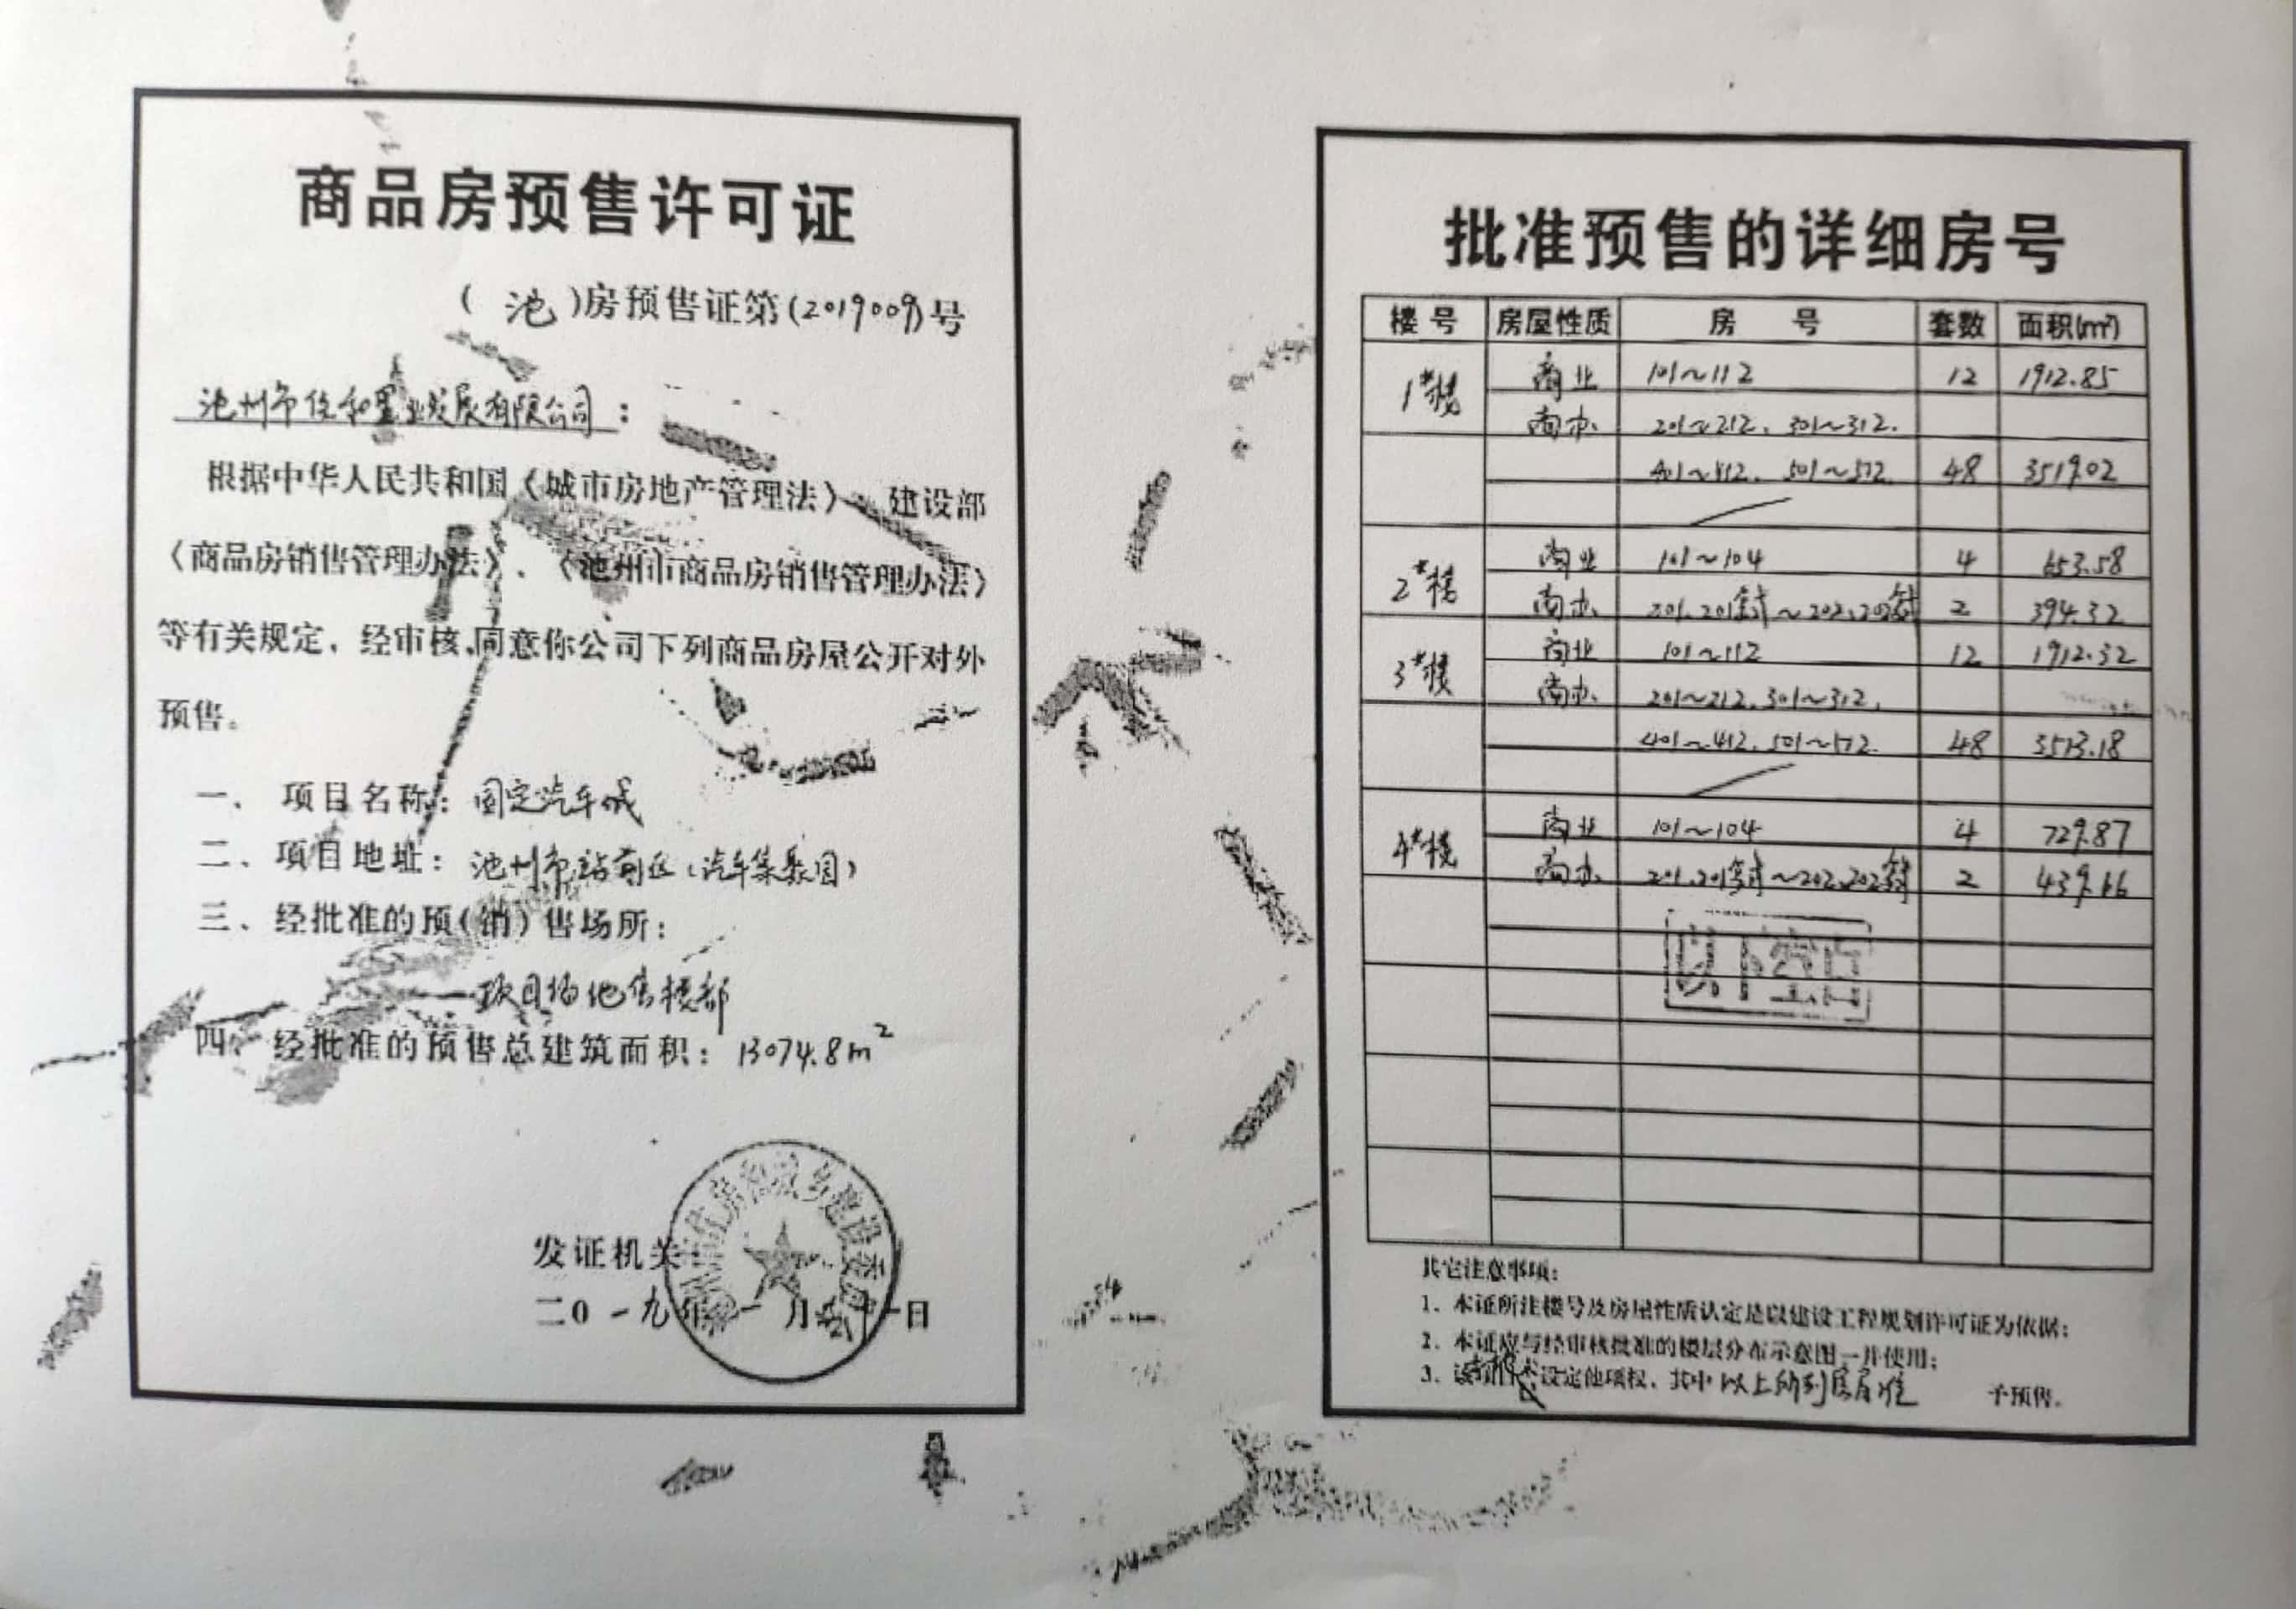 商品房预售许可证
(池)房预售证第(2019009)号
池州市佳和置业发展有限公司：
根据中华人民共和国《城市房地产管理法》、建设部
《商品房销售管理办法》、《池州市商品房销售管理办法》
等有关规定，经审核，同意你公司下列商品房屋公开对外
预售。
一、项目名称：固定汽车城
二、项目地址：池州市站前区(汽车集聚园)
三、经批准的预(销)售场所：
项目场地售楼部
四、经批准的预售总建筑面积：13074.8m²
发证机关
二0一九年一月 日
批准预售的详细房号
楼号 房屋性质 房号 套数 面积(m²)
1#楼 商业 101~112 12 1912.85
商办 201~212、301~312、
401~412、501~512 48 3519.02
2#楼 商业 101~104 4 653.58
商办 201、201复式~202、202复式 2 394.32
3#楼 商业 101~112 12 1912.32
商办 201~212、301~312、
401~412、501~512 48 3513.18
4#楼 商业 101~104 4 729.87
商办 201、201复式~202、202复式 2 439.66
以下空白
其它注意事项：
1、本证所注楼号及房屋性质认定是以建设工程规划许可证为依据；
2、本证应与经审核批准的楼层分布示意图一并使用；
3、该项目未设定他项权，其中以上所列房屋准予预售。